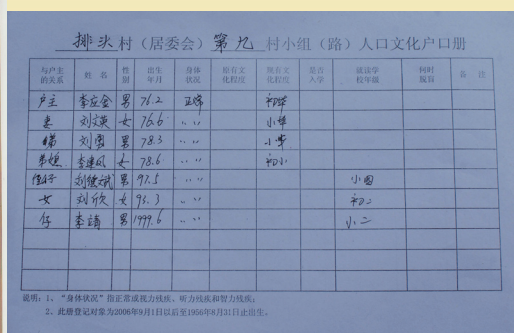 排头村（居委会）第九村小组（路）人口文化户口册
与户主的关系 姓名 性别 出生年月 身体状况 原有文化程度 现有文化程度 是否入学 就读学校年级 何时脱盲 备注
户主 李应会 男 76.2 正常 初毕
妻 刘文英 女 76.6 〃 小毕
刘勇 男 78.3 〃 小毕
弟媳 李建凤 女 78.6 〃 初小
侄仔 刘健斌 男 97.5 〃 小四
女 刘欣 女 93.3 〃 初二
仔 李靖 男 1999.6 〃 小二
说明：1、“身体状况”指正常或视力残疾、听力残疾和智力残疾；
2、此册登记对象为2006年9月1日以后至1956年8月31日止出生。